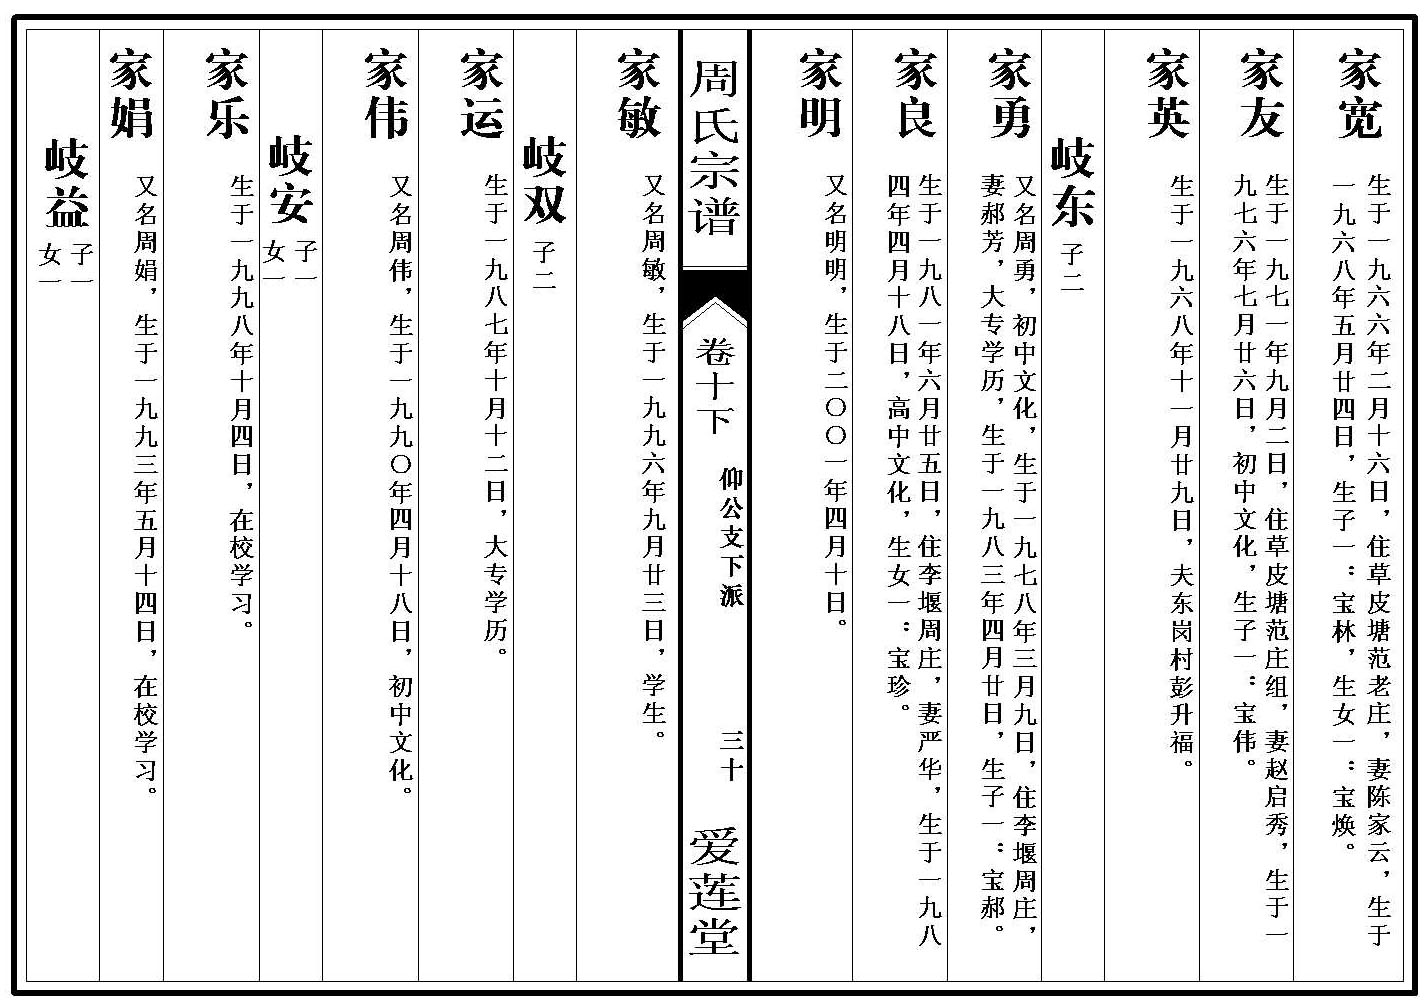 家宽
生于一九六六年二月十六日，住草皮塘范老庄，妻陈家云，生于
一九六八年五月廿四日，生子一：宝林，生女一：宝焕。
家友
生于一九七一年九月二日，住草皮塘范庄组，妻赵启秀，生于一
九七六年七月廿六日，初中文化，生子一：宝伟。
家英
生于一九六八年十一月廿九日，夫东岗村彭升福。
岐东
子二
家勇
又名周勇，初中文化，生于一九七八年三月九日，住李堰周庄，
妻郝芳，大专学历，生于一九八三年四月廿日，生子一：宝郝。
家良
生于一九八一年六月廿五日，住李堰周庄，妻严华，生于一九八
四年四月十八日，高中文化，生女一：宝珍。
家明
又名明明，生于二〇〇一年四月十日。
周氏宗谱
卷十下
仰公支下派
三十
爱莲堂
家敏
又名周敏，生于一九九六年九月廿三日，学生。
岐双
子二
家运
生于一九八七年十月十二日，大专学历。
家伟
又名周伟，生于一九九〇年四月十八日，初中文化。
岐安
子一
女一
家乐
生于一九九八年十月四日，在校学习。
家娟
又名周娟，生于一九九三年五月十四日，在校学习。
岐益
子一
女一